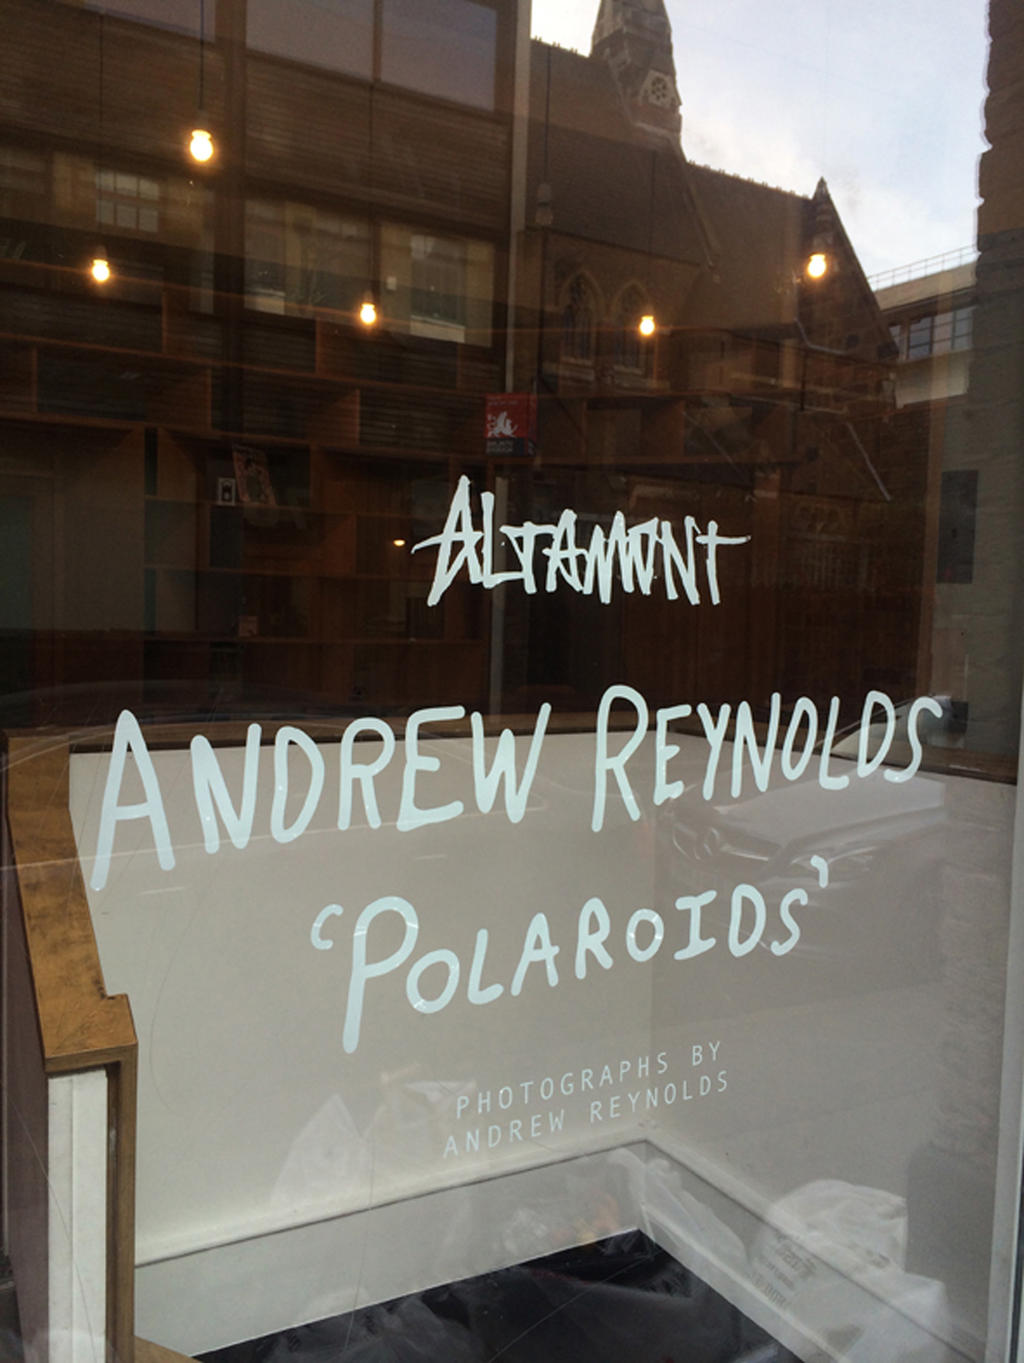 ALTAMONT
ANDREW REYNOLDS
'POLAROIDS'
PHOTOGRAPHS BY
ANDREW REYNOLDS